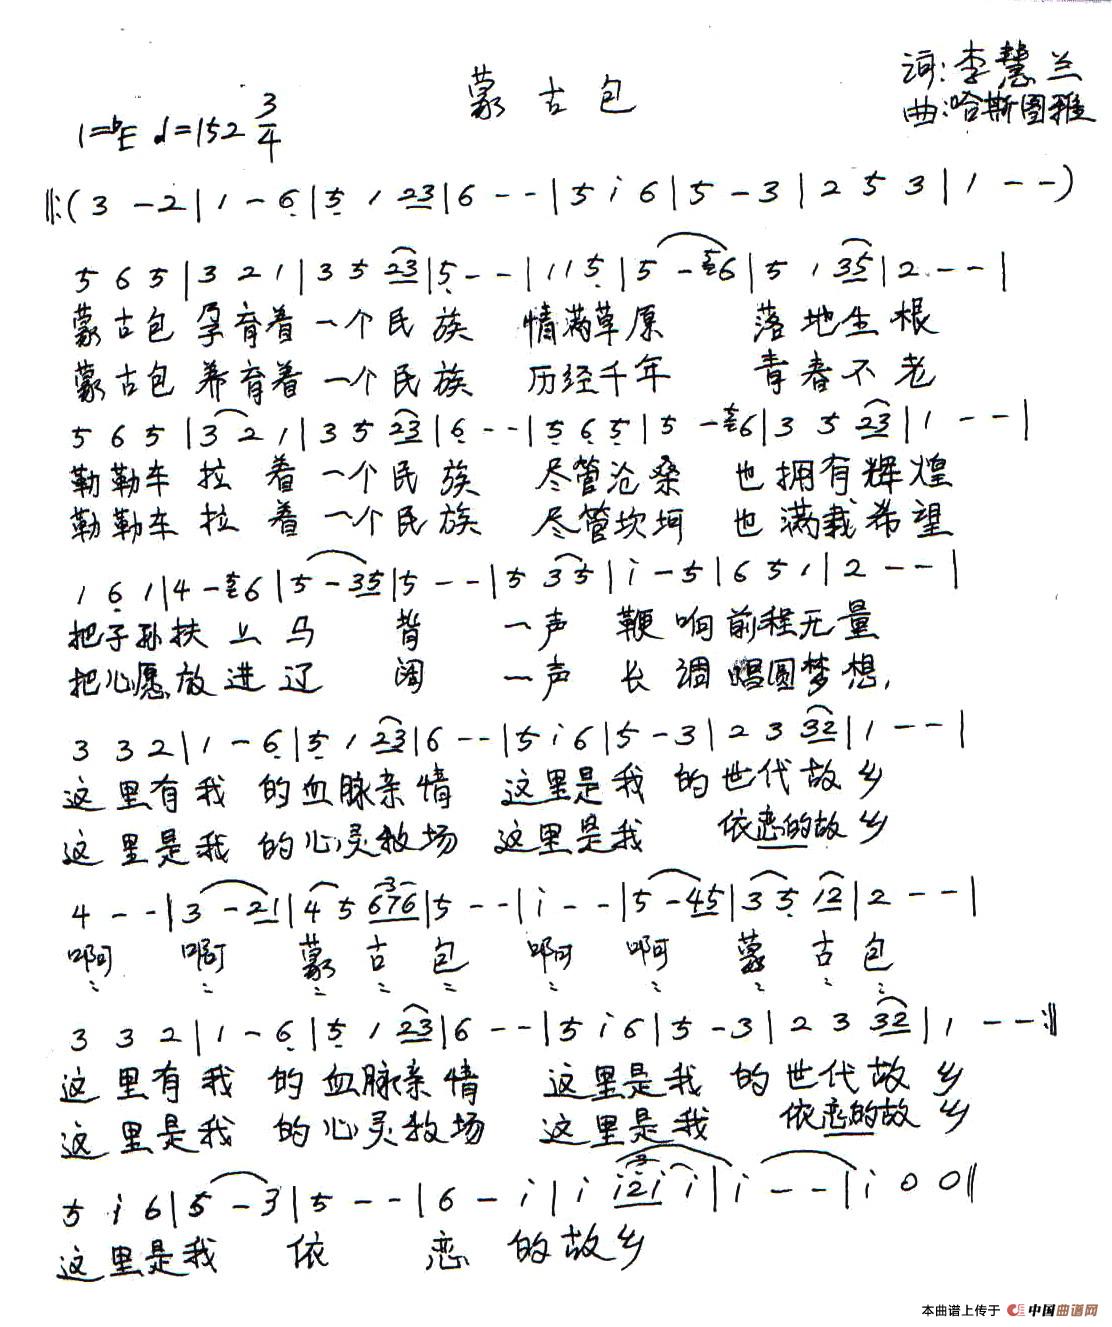 蒙古包
词:李慧兰
曲:哈斯图雅
1=♭E d=152 3/4
‖:(3 - 2 | 1 - 6̣ | 5̣ 1 23 | 6 - - | 5 i 6 | 5 - 3 | 2 5 3 | 1 - -)
5 6 5 | 3 2 1 | 3 5 23 | 5̣ - - | 1 1 5̣ | 5 - 56 | 5 1 35 | 2 - - |
蒙古包 孕育着一个民族 情满草原 落地生根
蒙古包 养育着一个民族 历经千年 青春不老
5 6 5 | 3 2 1 | 3 5 23 | 6̣ - - | 5̣ 6̣ 5̣ | 5 - 56 | 3 5 23 | 1 - - |
勒勒车 拉着一个民族 尽管沧桑 也拥有辉煌
勒勒车 拉着一个民族 尽管坎坷 也满载希望
1 6̣ 1 | 4 - 56 | 5 - 35 | 5 - - | 5 35 | i - 5 | 6 5 1 | 2 - - |
把子孙扶上马背 一声鞭响前程无量
把心愿放进辽阔 一声长调唱圆梦想,
3 3 2 | 1 - 6̣ | 5̣ 1 23 | 6 - - | 5 i 6 | 5 - 3 | 2 3 32 | 1 - - |
这里有我的血脉亲情 这里是我的世代故乡
这里是我的心灵牧场 这里是我 依恋的故乡
4 - - | 3 - 21 | 4 5 676 | 5 - - | i - - | 5 - 45 | 3 5̣ 12 | 2 - - |
啊 啊 蒙古包 啊 啊 蒙古包
3 3 2 | 1 - 6̣ | 5̣ 1 23 | 6 - - | 5 i 6 | 5 - 3 | 2 3 32 | 1 - - :‖
这里有我的血脉亲情 这里是我的世代故乡
这里是我的心灵牧场 这里是我 依恋的故乡
5 i 6 | 5 - 3 | 5 - - | 6 - i | i i2i i | i - - | i 0 0 ‖
这里是我 依恋的故乡
本曲谱上传于 中国曲谱网